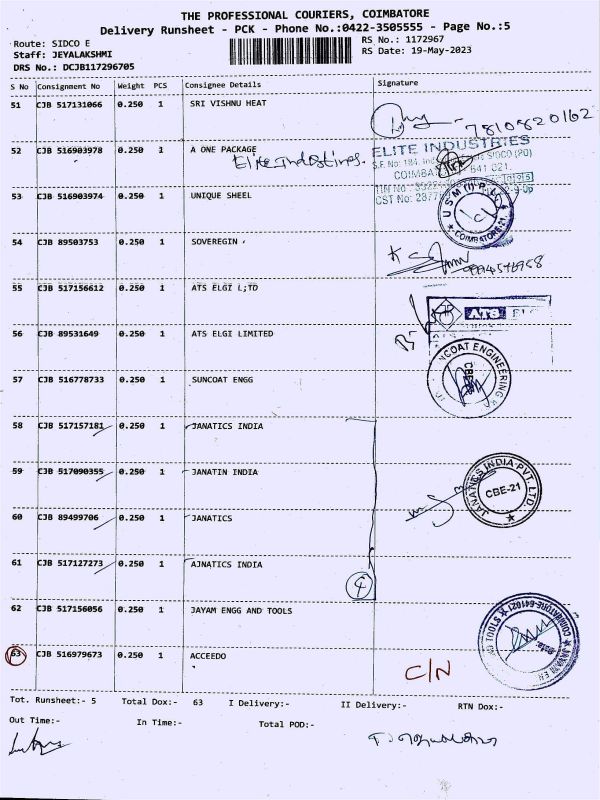 THE PROFESSIONAL COURIERS, COIMBATORE
Delivery Runsheet - PCK - Phone No.:0422-3505555 - Page No.:5
Route: SIDCO E
RS No.: 1172967
Staff: JEYALAKSHMI
RS Date: 19-May-2023
DRS No.: DCJB117296705
S No Consignment No Weight PCS Consignee Details Signature
51 CJB 517131066 0.250 1 SRI VISHNU HEAT
7810820162
52 CJB 516903978 0.250 1 A ONE PACKAGE
Elite Industries.
ELITE INDUSTRIES
COIMBA 641 021.
53 CJB 516903974 0.250 1 UNIQUE SHEEL
COIMBATORE-21
54 CJB 89503753 0.250 1 SOVEREGIN
55 CJB 517156612 0.250 1 ATS ELGI L;TD
ATS
56 CJB 89531649 0.250 1 ATS ELGI LIMITED
57 CJB 516778733 0.250 1 SUNCOAT ENGG
NCOAT ENGINEERING
CBE
58 CJB 517157181 0.250 1 JANATICS INDIA
59 CJB 517090355 0.250 1 JANATIN INDIA
JANATICS INDIA PVT. LTD.
CBE-21
60 CJB 89499706 0.250 1 JANATICS
61 CJB 517127273 0.250 1 AJNATICS INDIA
4
62 CJB 517156056 0.250 1 JAYAM ENGG AND TOOLS
COIMBATORE-641021
63 CJB 516979673 0.250 1 ACCEEDO
C/N
Tot. Runsheet:- 5 Total Dox:- 63 I Delivery:- II Delivery:- RTN Dox:-
Out Time:- In Time:- Total POD:-